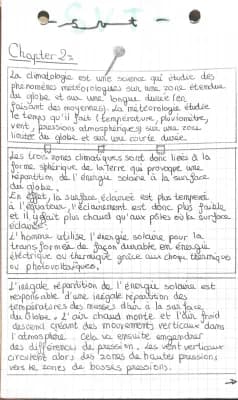 SVT
Chapter 2:
La climatologie est une science qui étudie des
phénomènes météorologiques sur une zone étendue
du globe et sur une longue durée (en
faisant des moyennes). La météorologie étudie
le temps qu'il fait (température, pluviomètre,
vent, pressions atmosphériques) sur une zone
limitée du globe et sur une courte durée.
Les trois zones climatiques sont donc liées à la
forme sphérique de la Terre qui provoque une
répartition de l'énergie solaire à la surface
du globe.
En effet, la surface éclairée est plus
à l'équateur, l'éclairement est donc plus faible
et il y fait plus chaud qu'aux pôles où la surface
éclairée.
L'homme utilise l'énergie solaire pour la
transformée de façon durable en énergie
électrique ou thermique grâce aux thermiques
ou photovoltaïques.
L'inégale répartition de l'énergie solaire est
responsable d'une inégale répartition des
températures des masses d'air à la surface
du Globe. L'air chaud monte et l'air froid
descend créant des mouvements verticaux dans
l'atmosphère. Cela va ensuite engendrer
des différences de pression. Les vent verticaux
circulent alors des zones de hautes pressions
vers le zones de basses pressions.